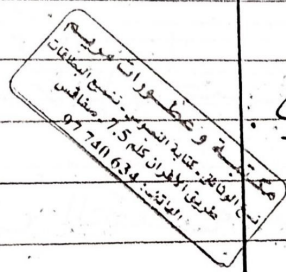 مكتبة وعطورات مريم
نسخ الوثائق. كتابة النصوص. تسفير
طريق الأفران كلم 7,5 - صفاقس
الهاتف: 97 740 634